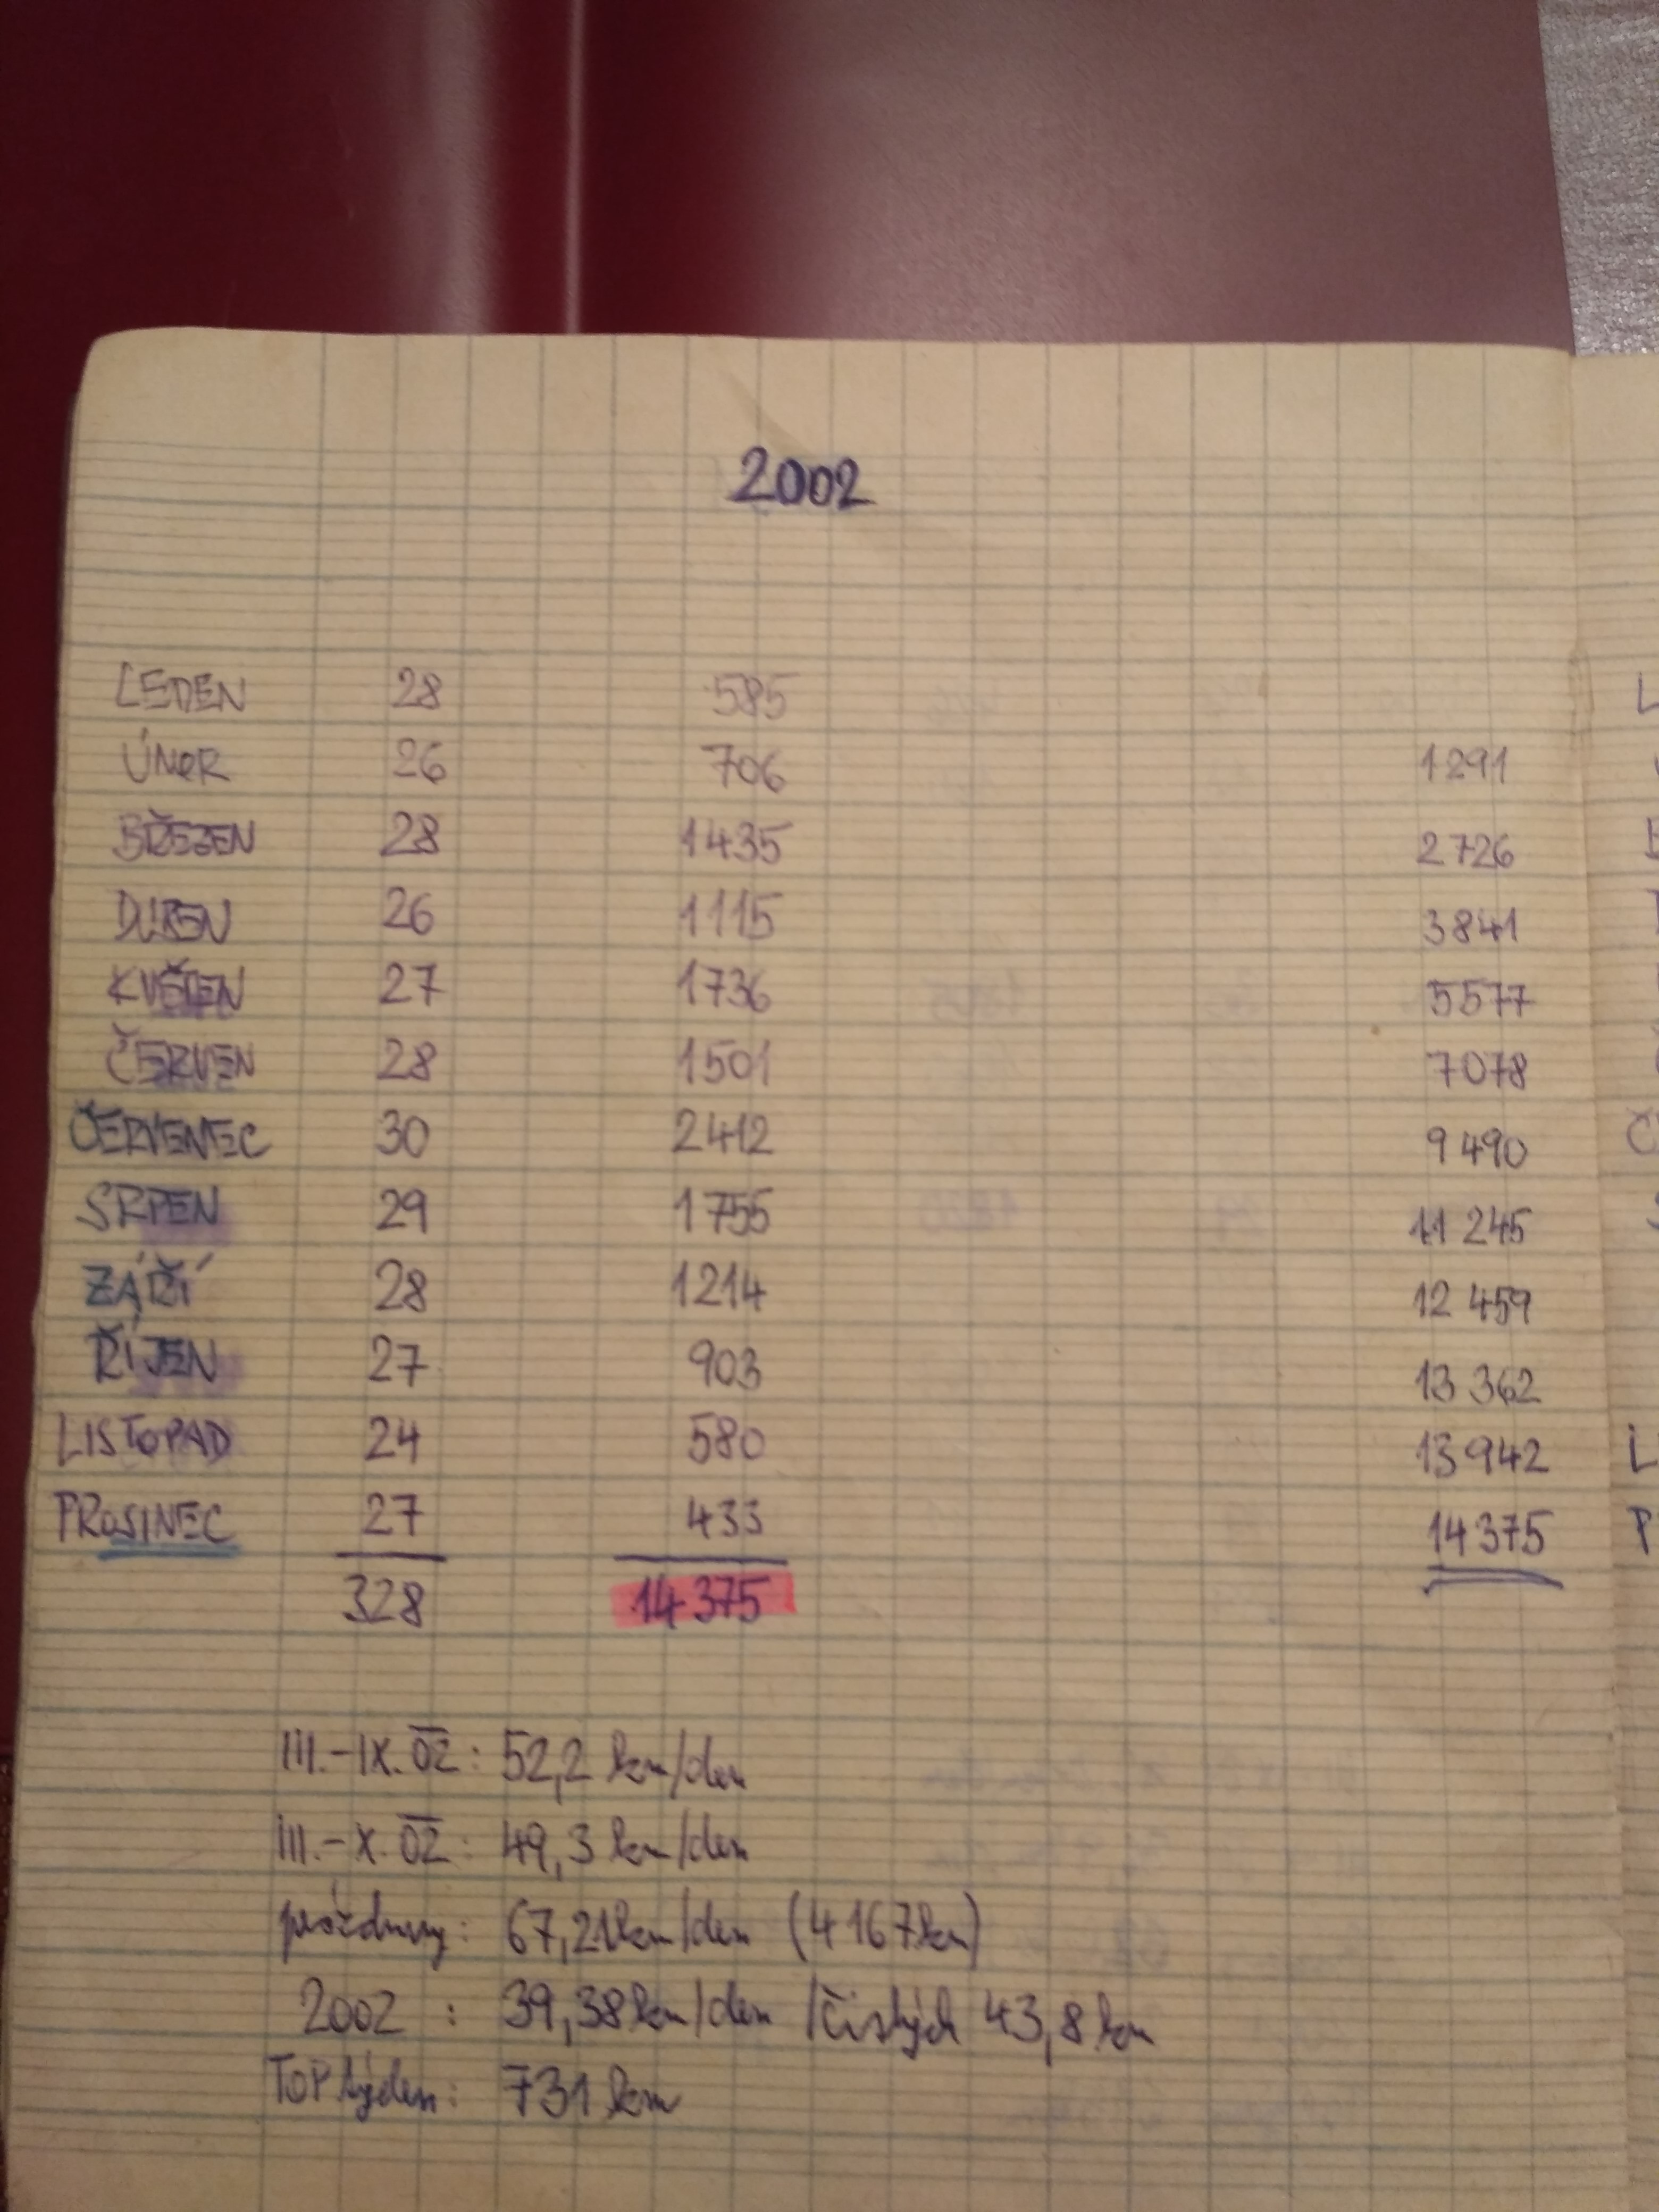 2002
LEDEN 28 585
ÚNOR 26 706 1291
BŘEZEN 28 1435 2726
DUBEN 26 1115 3841
KVĚTEN 27 1736 5577
ČERVEN 28 1501 7078
ČERVENEC 30 2412 9490
SRPEN 29 1755 11 245
ZÁŘÍ 28 1214 12 459
ŘÍJEN 27 903 13 362
LISTOPAD 24 580 13 942
PROSINEC 27 433 14 375
328 14 375
III.-IX. 02: 52,2 km/den
III.-X. 02: 49,3 km/den
prázdniny: 67,21km/den (4 167km)
2002 : 39,38km/den /čistých 43,8 km
TOP týden: 731 km